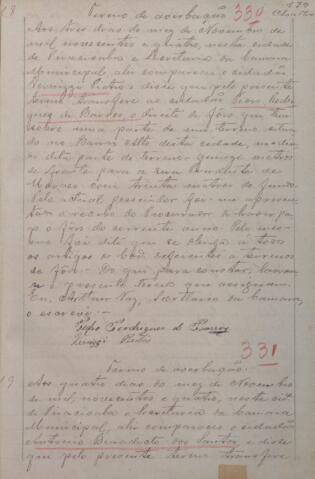 18 Termo de averbação 330 179
Aos tres dias do mez de Novembro de
mil novecentos e quatro, nesta cidade
de Piracicaba e Secretaria da Camara
Municipal, ahi compareceu o cidadão
Pietro e disse que pelo presente
termo transfere ao cidadão Pedro Rodri
gues de Barros o direito de fôro que tem
sobre uma parte de um terreno situa
do no Bairro Alto desta cidade, medin
do dita parte de terreno quinze metros
de frente para a rua Prudente de
Moraes com trinta metros de fundo.
Pelo actual possuidor foi-me apresen
tado o recibo do Procurador de haver pa
go o fôro do corrente anno. Pelo mes
mo foi dito que se obriga a todos
os artigos do Cod. referentes a terrenos
de fôro. Do que, para constar, lavrou
se o presente termo que assignam.
Eu, Arthur Vaz, Secretario da Camara,
o escrevi.
Pedro Rodrigues de Barros
Pietro
331
Termo de averbação.
19 Aos quatro dias do mez de Novembro
de mil novecentos e quatro, nesta cid.
de Piracicaba e Secretaria da Camara
Municipal, ahi compareceu o cidadão
Antonio Benedicto dos Santos e disse
que pelo presente termo transfere